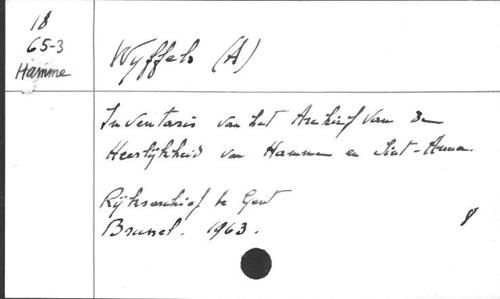 18
65-3
Hamme
Wyffels (A)
Inventaris van het Archief van de
Heerlijkheid van Hamme en Sint-Anna.
Rijksarchief te Gent
Brussel. 1963.
8